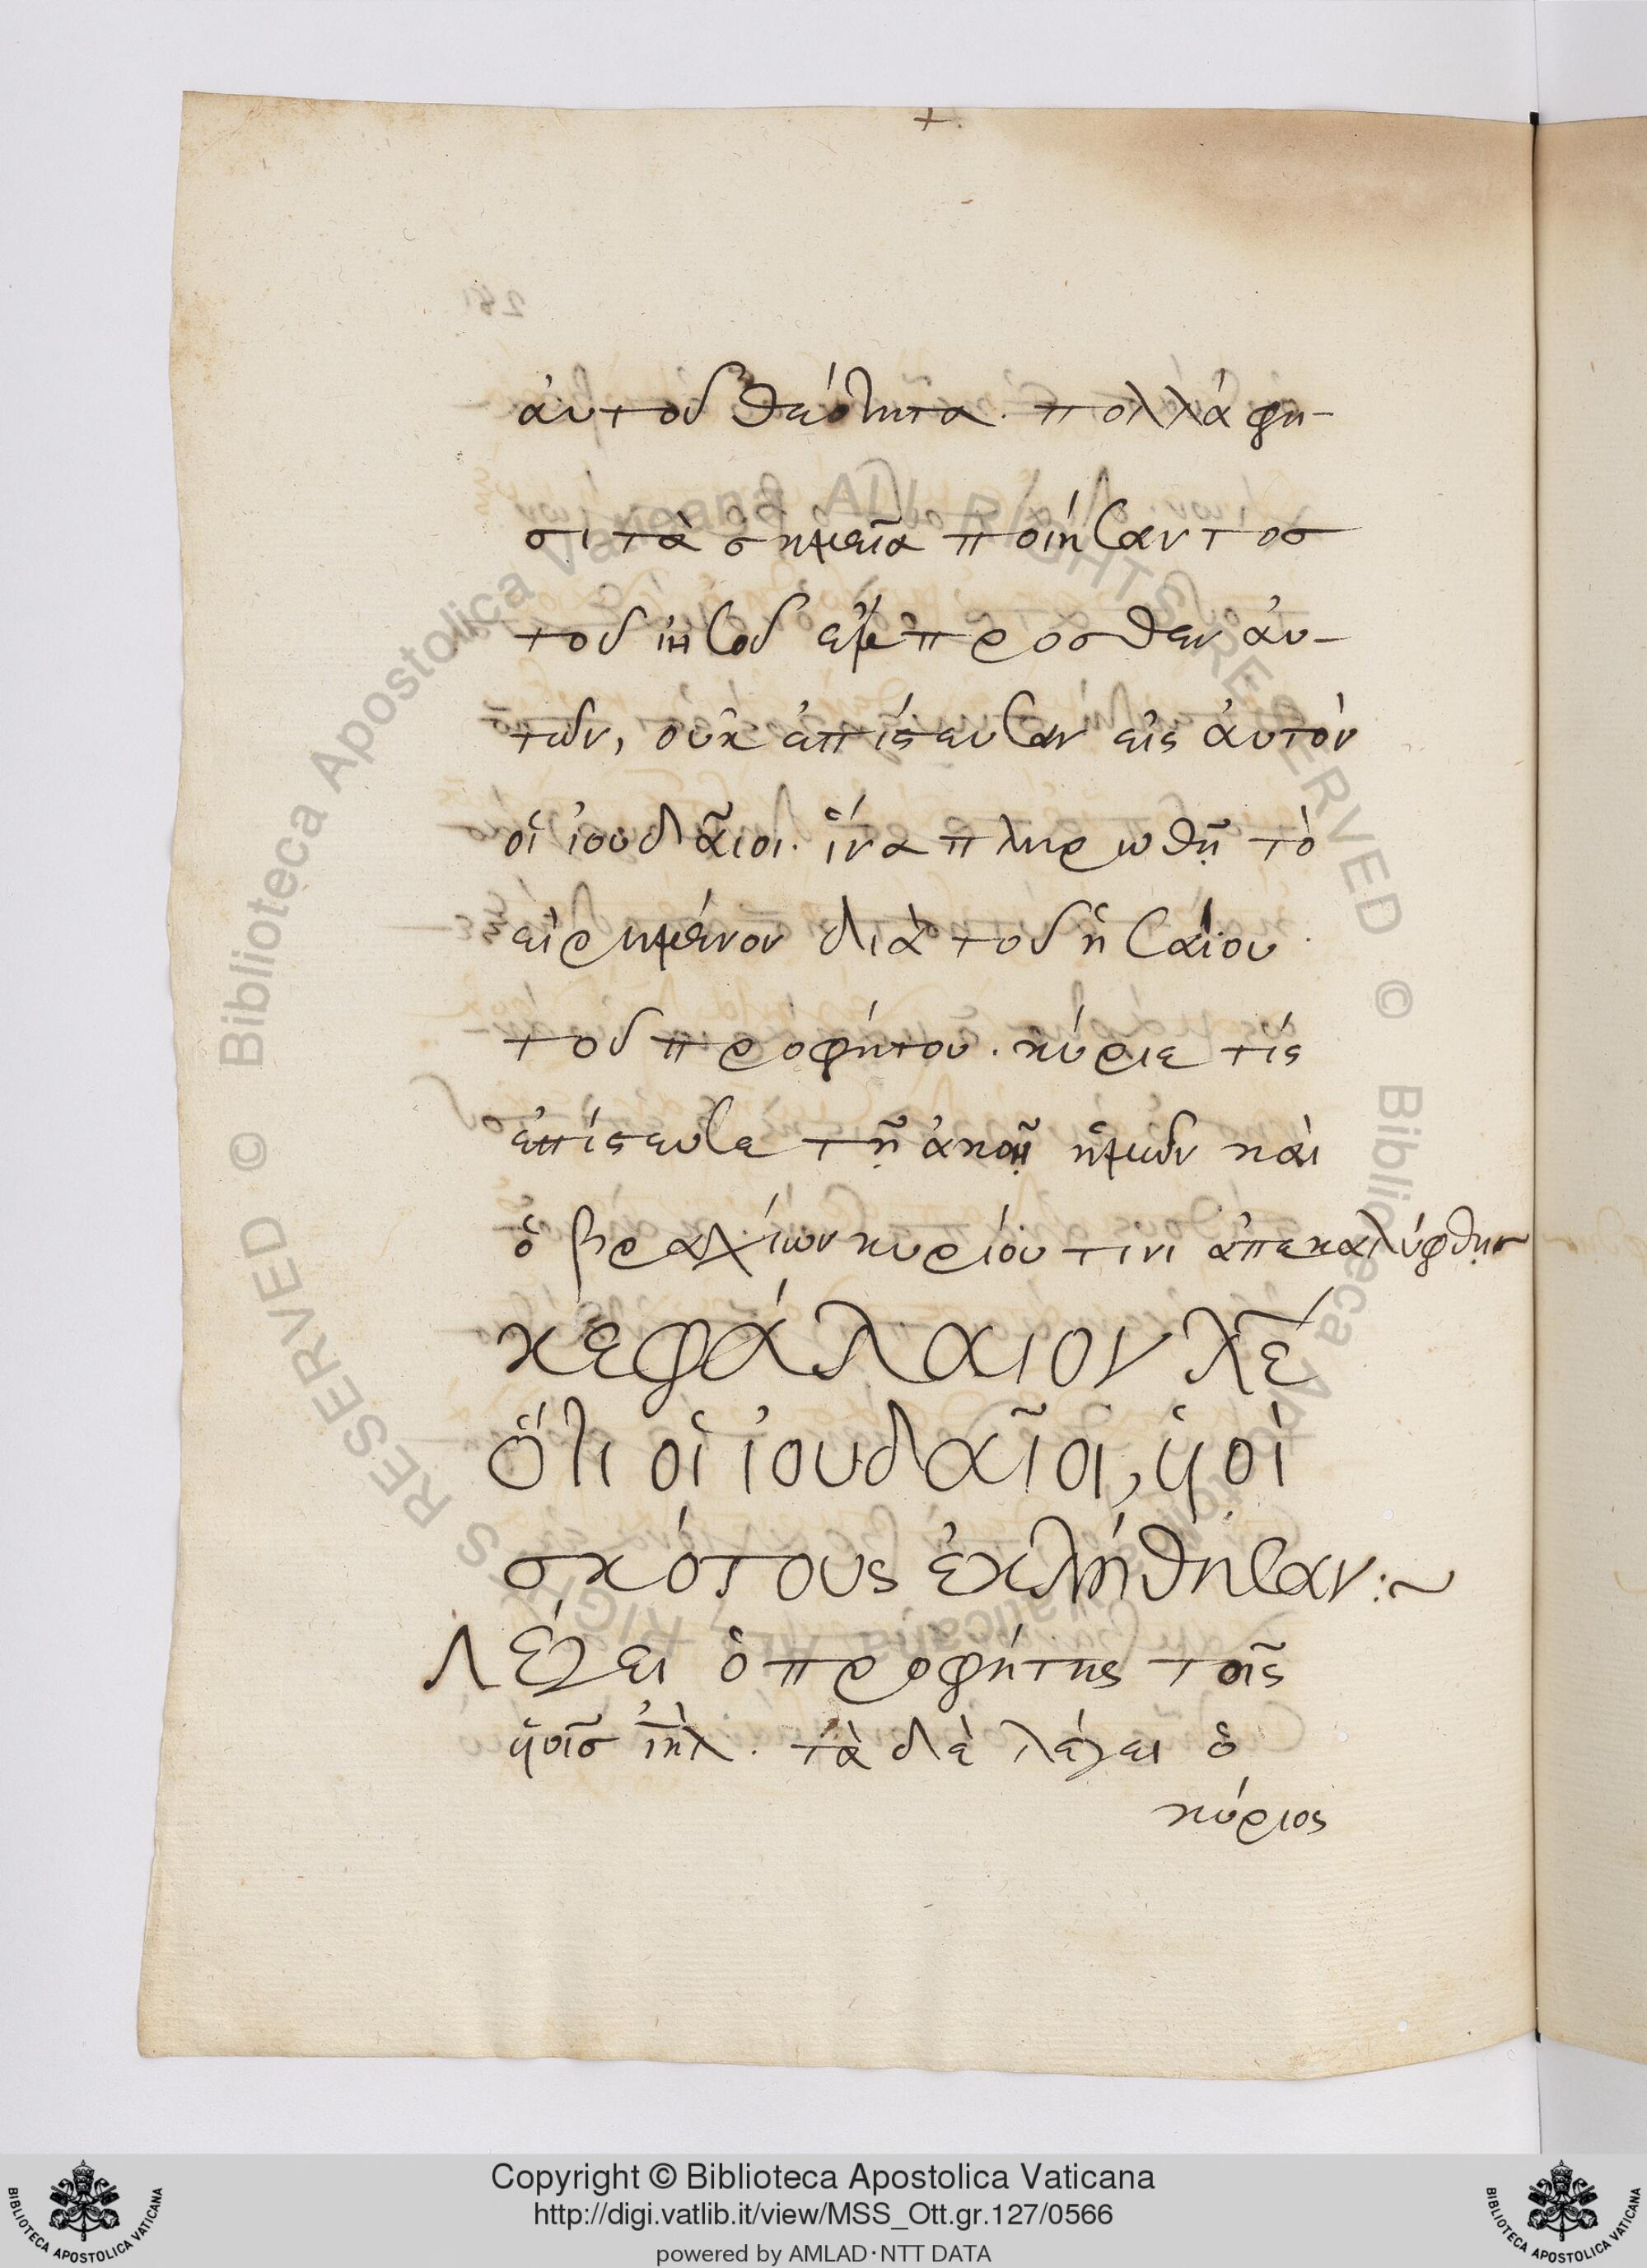 +.
ἀυτοῦ θεότητα. πολλά φη-
σι τὰ σημεῖα ποιήσαντοσ
τοῦ ἰησοῦ ἔμπροσθεν ἀυ-
τῶν, οὐκ ἐπίςευσαν εἰς ἀυτὸν
οἱ ἰουδᾶιοι. ἵνα πληρωθῇ τὸ
εἰρημένον διὰ τοῦ ἡσαΐου
τοῦ προφήτου. κύριε τίς
ἐπίςευσε τῇ ἀκοῇ ἡμῶν κὰι
ὁ βραχίων κυρίου τινι ἀπεκαλύφθη·
κεφάλαιον λ̅ε̅
ὅτι οἱ ἰουδαῖοι, ὑιοὶ
σκότους ἐκλήθησαν:~
Λέγει ὁ προφήτης τοῖς
ὑιοῖσ ι̅η̅λ̅. τὰ δὲ λέγει ὁ
κύριος
Copyright © Biblioteca Apostolica Vaticana
http://digi.vatlib.it/view/MSS_Ott.gr.127/0566
powered by AMLAD·NTT DATA
BIBLIOTECA APOSTOLICA VATICANA
BIBLIOTECA APOSTOLICA VATICANA
© Biblioteca Apostolica Vaticana ALL RIGHTS RESERVED
© Biblioteca Apostolica Vaticana ALL RIGHTS RESERVED